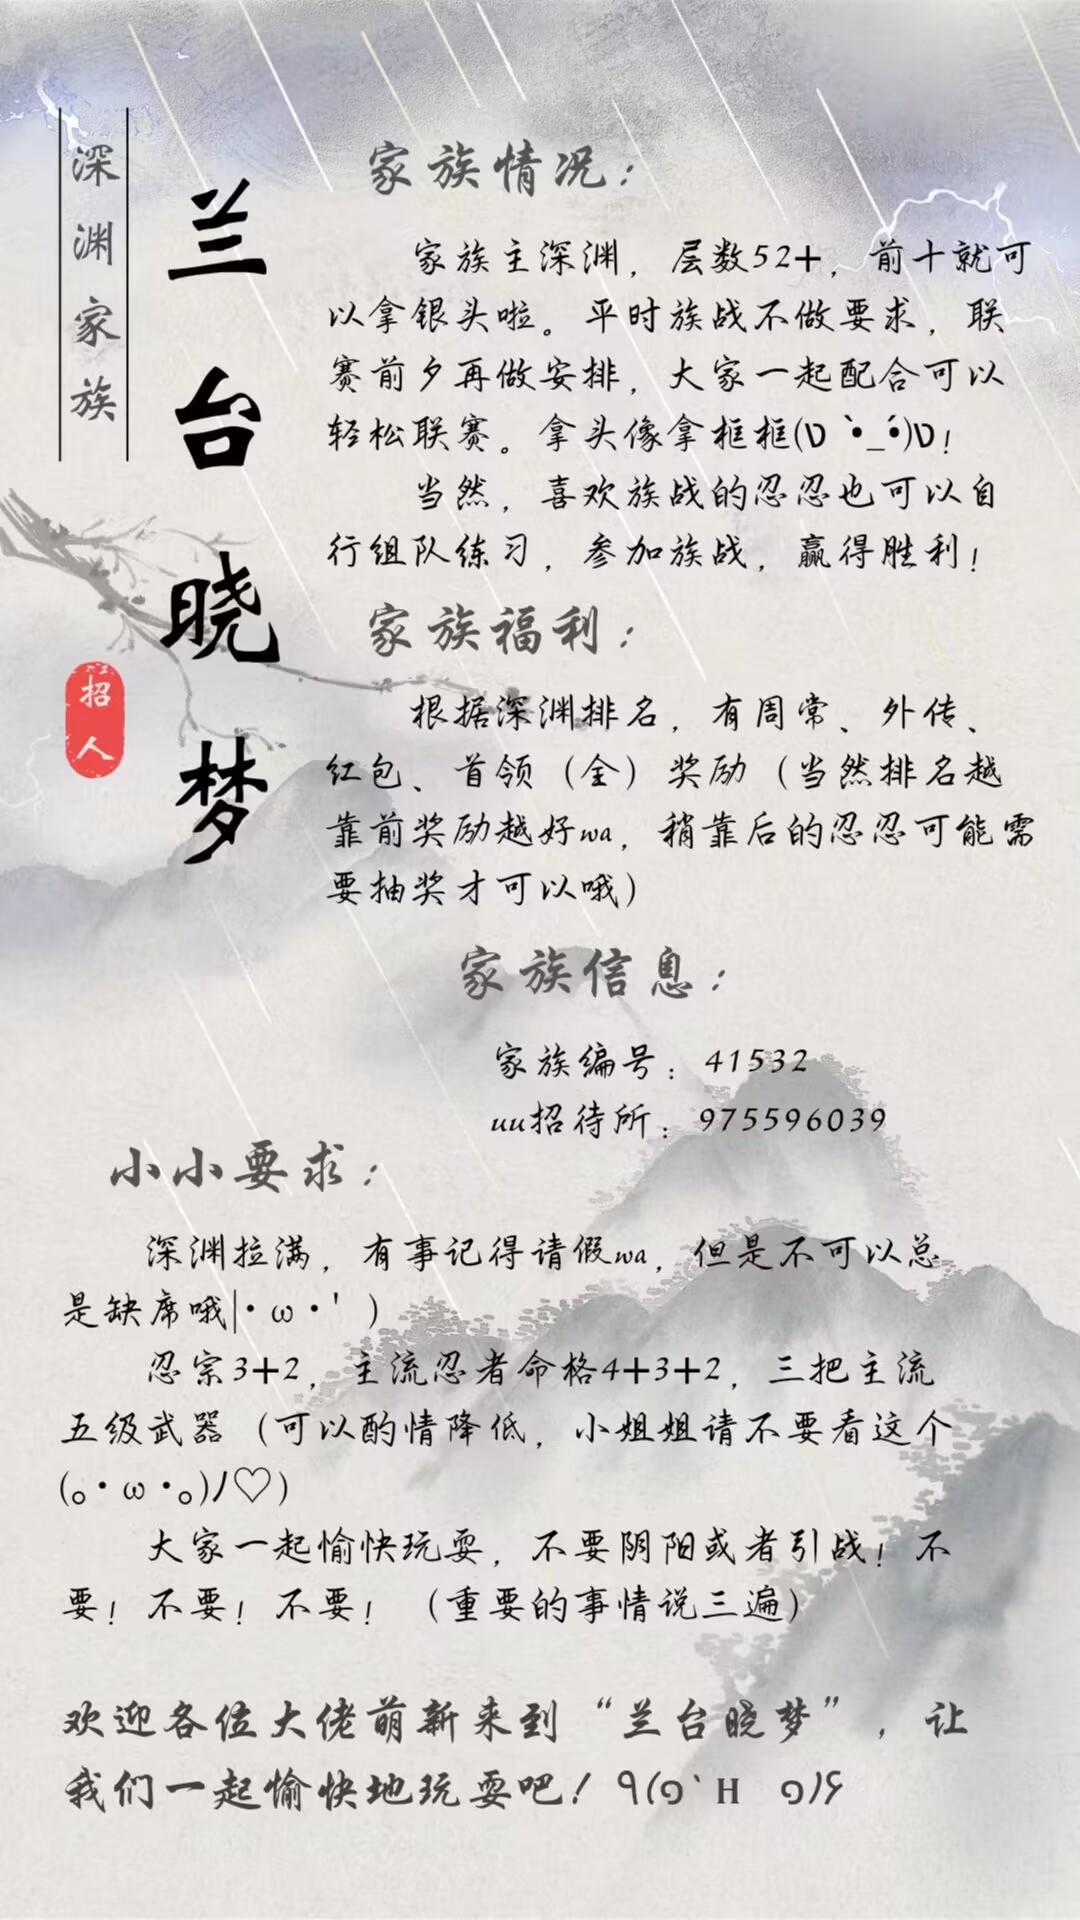 深渊家族
兰台晓梦
招人
家族情况：
家族主深渊，层数52+，前十就可
以拿银头啦。平时族战不做要求，联
赛前夕再做安排，大家一起配合可以
轻松联赛。拿头像拿框框(ง •̀_•́)ง！
当然，喜欢族战的忍忍也可以自
行组队练习，参加族战，赢得胜利！
家族福利：
根据深渊排名，有周常、外传、
红包、首领（金）奖励（当然排名越
靠前奖励越好wa，稍靠后的忍忍可能需
要抽奖才可以哦）
家族信息：
家族编号：41532
uu招待所：975596039
小小要求：
深渊拉满，有事记得请假wa，但是不可以总
是缺席哦|･ω･'）
忍宗3+2，主流忍者命格4+3+2，三把主流
五级武器（可以酌情降低，小姐姐请不要看这个
(｡･ω･｡)ﾉ♡）
大家一起愉快玩耍，不要阴阳或者引战！不
要！不要！不要！（重要的事情说三遍）
欢迎各位大佬萌新来到“兰台晓梦”，让
我们一起愉快地玩耍吧！٩(๑`H ๑)۶